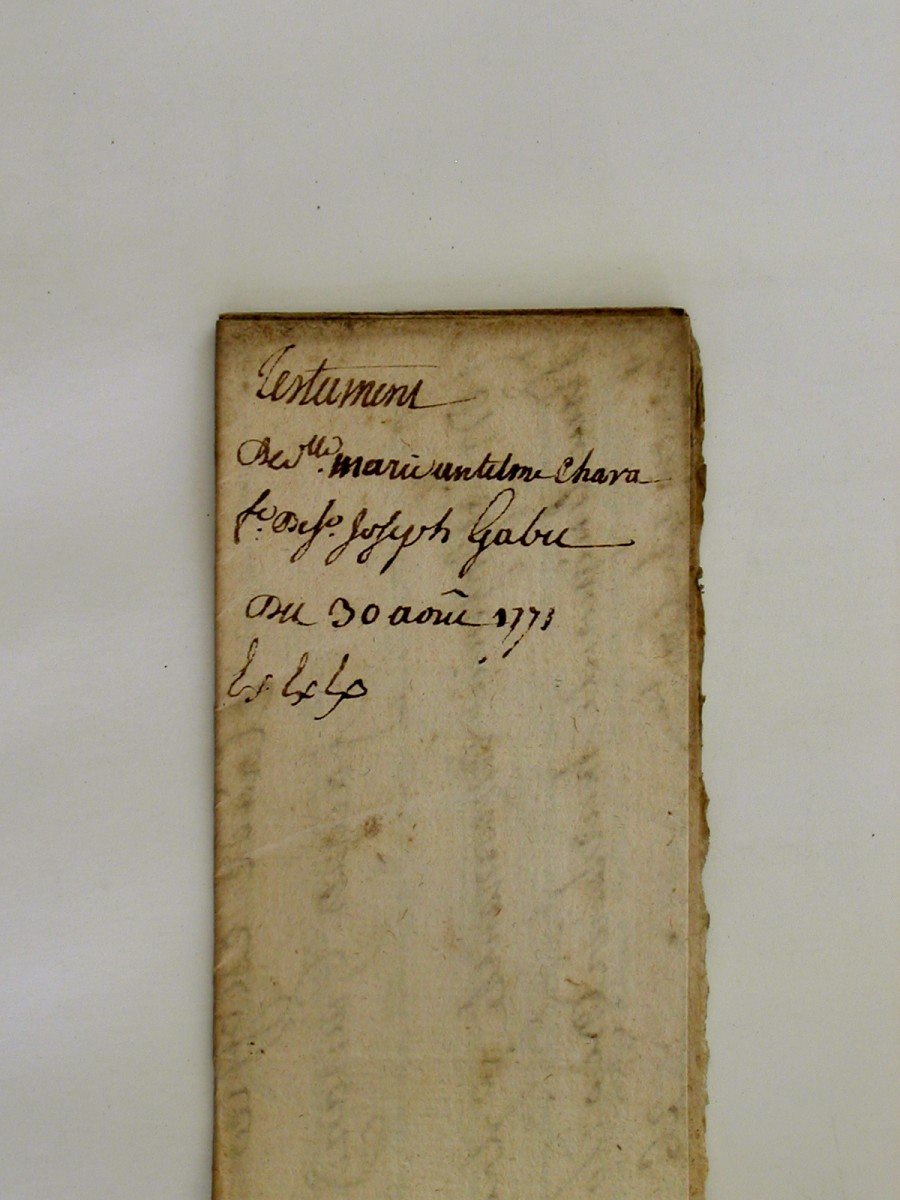 Testament
De d.lle marie antelme Chara
fe. De Sr. Joseph Gabu
Du 30 aout 1771